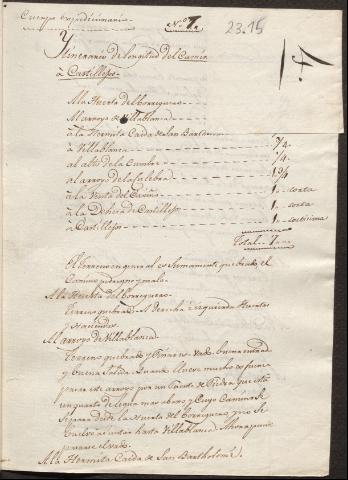 Cuerpo expedicionario
Nº 7
23.15
7.
Ytinerario de longitud del Camino
à Castillejos
Al la Huerta del Borreguero
Al arroyo de Villablanca
à la Hermita Caida de San Bartolomé
à Villablanca 3/4
al alto de la Cumbre 3/4
al arroyo de la 1 3/4
à la Venta del 1 corta
à la Dehesa de Castillejos 1 corta
à Castillejos 1
Total 7
El terreno en general es sumamente quebrado, el
Camino pedregoso y malo.
A la Huerta del Borreguero
Terreno quebrado. A derecha é izquierda Huertas
y Haciendas.
Al arroyo de Villablanca.
Terreno quebrado y Pinares. Vado, buena entrada
y buena Salida. Quando llueve mucho es fuerza
pasar este arroyo por un Puente de Piedra que está
un quarto de legua mas abaxo y Cuyo Camino Se
Separa desde la Huerta del Borreguero, y no Se
buelve à juntar hasta Villablanca. Ahora puede
pasarse el vado.
A la Hermita Caida de San Bartholomé.